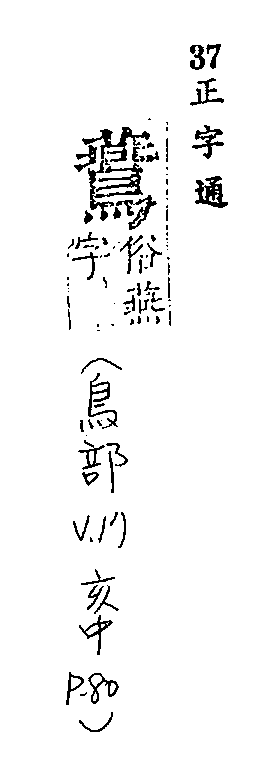 37正字通
鷰
俗燕
字
(鳥部 V.17 亥中 P.80)